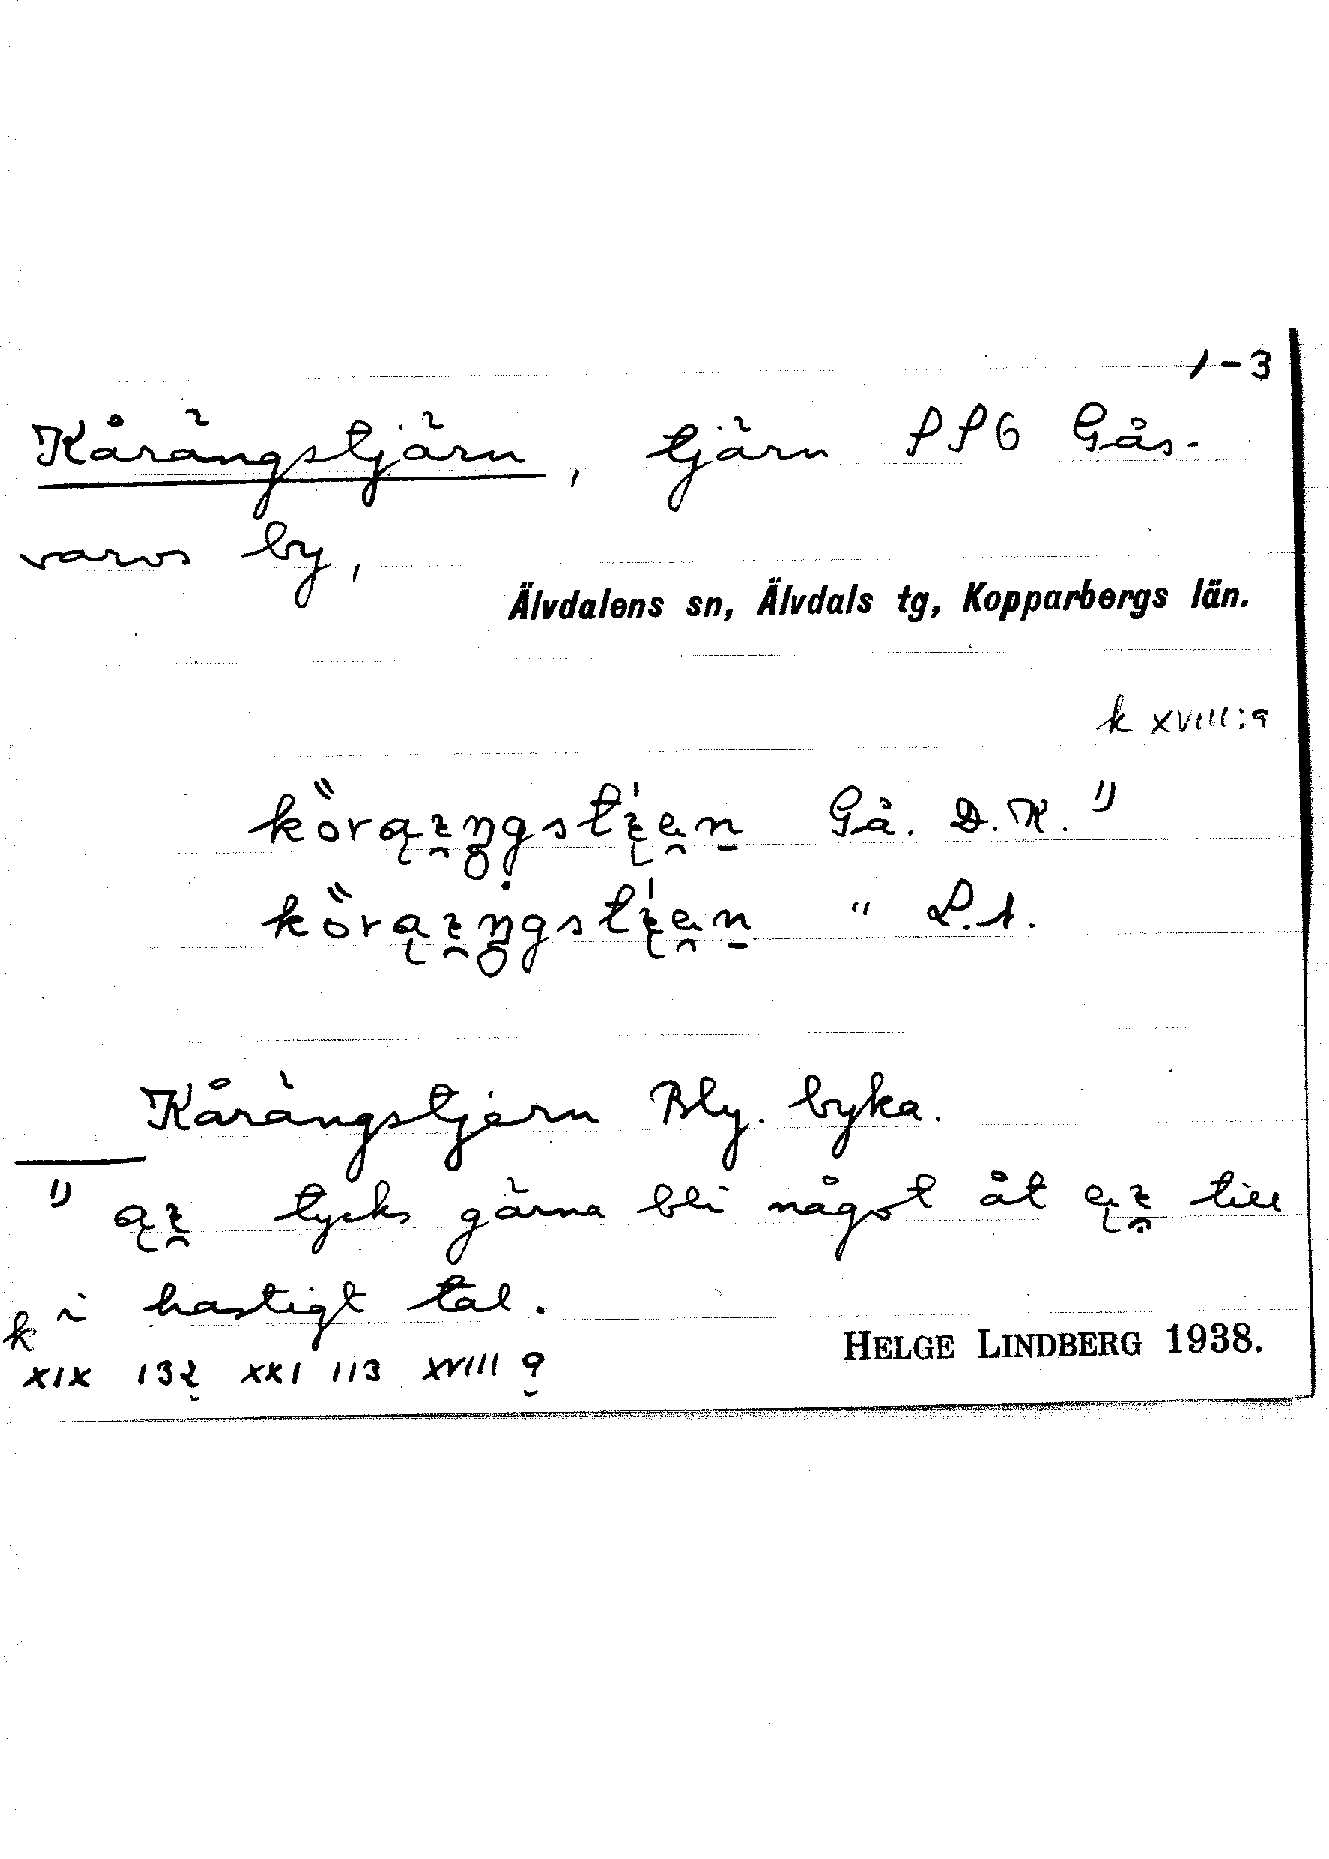 1-3
Kårängstjärn, tjärn SSG Gås-
varvs by,
Älvdalens sn, Älvdals tg, Kopparbergs län.
k XVIII:9
Gå. D.K. 1)
" L.A.
Kårängstjern Bly. byka.
1) tycks gärna bli något åt till
i hastigt tal.
k
HELGE LINDBERG 1938.
XIX 132 XXI 113 XVIII 9